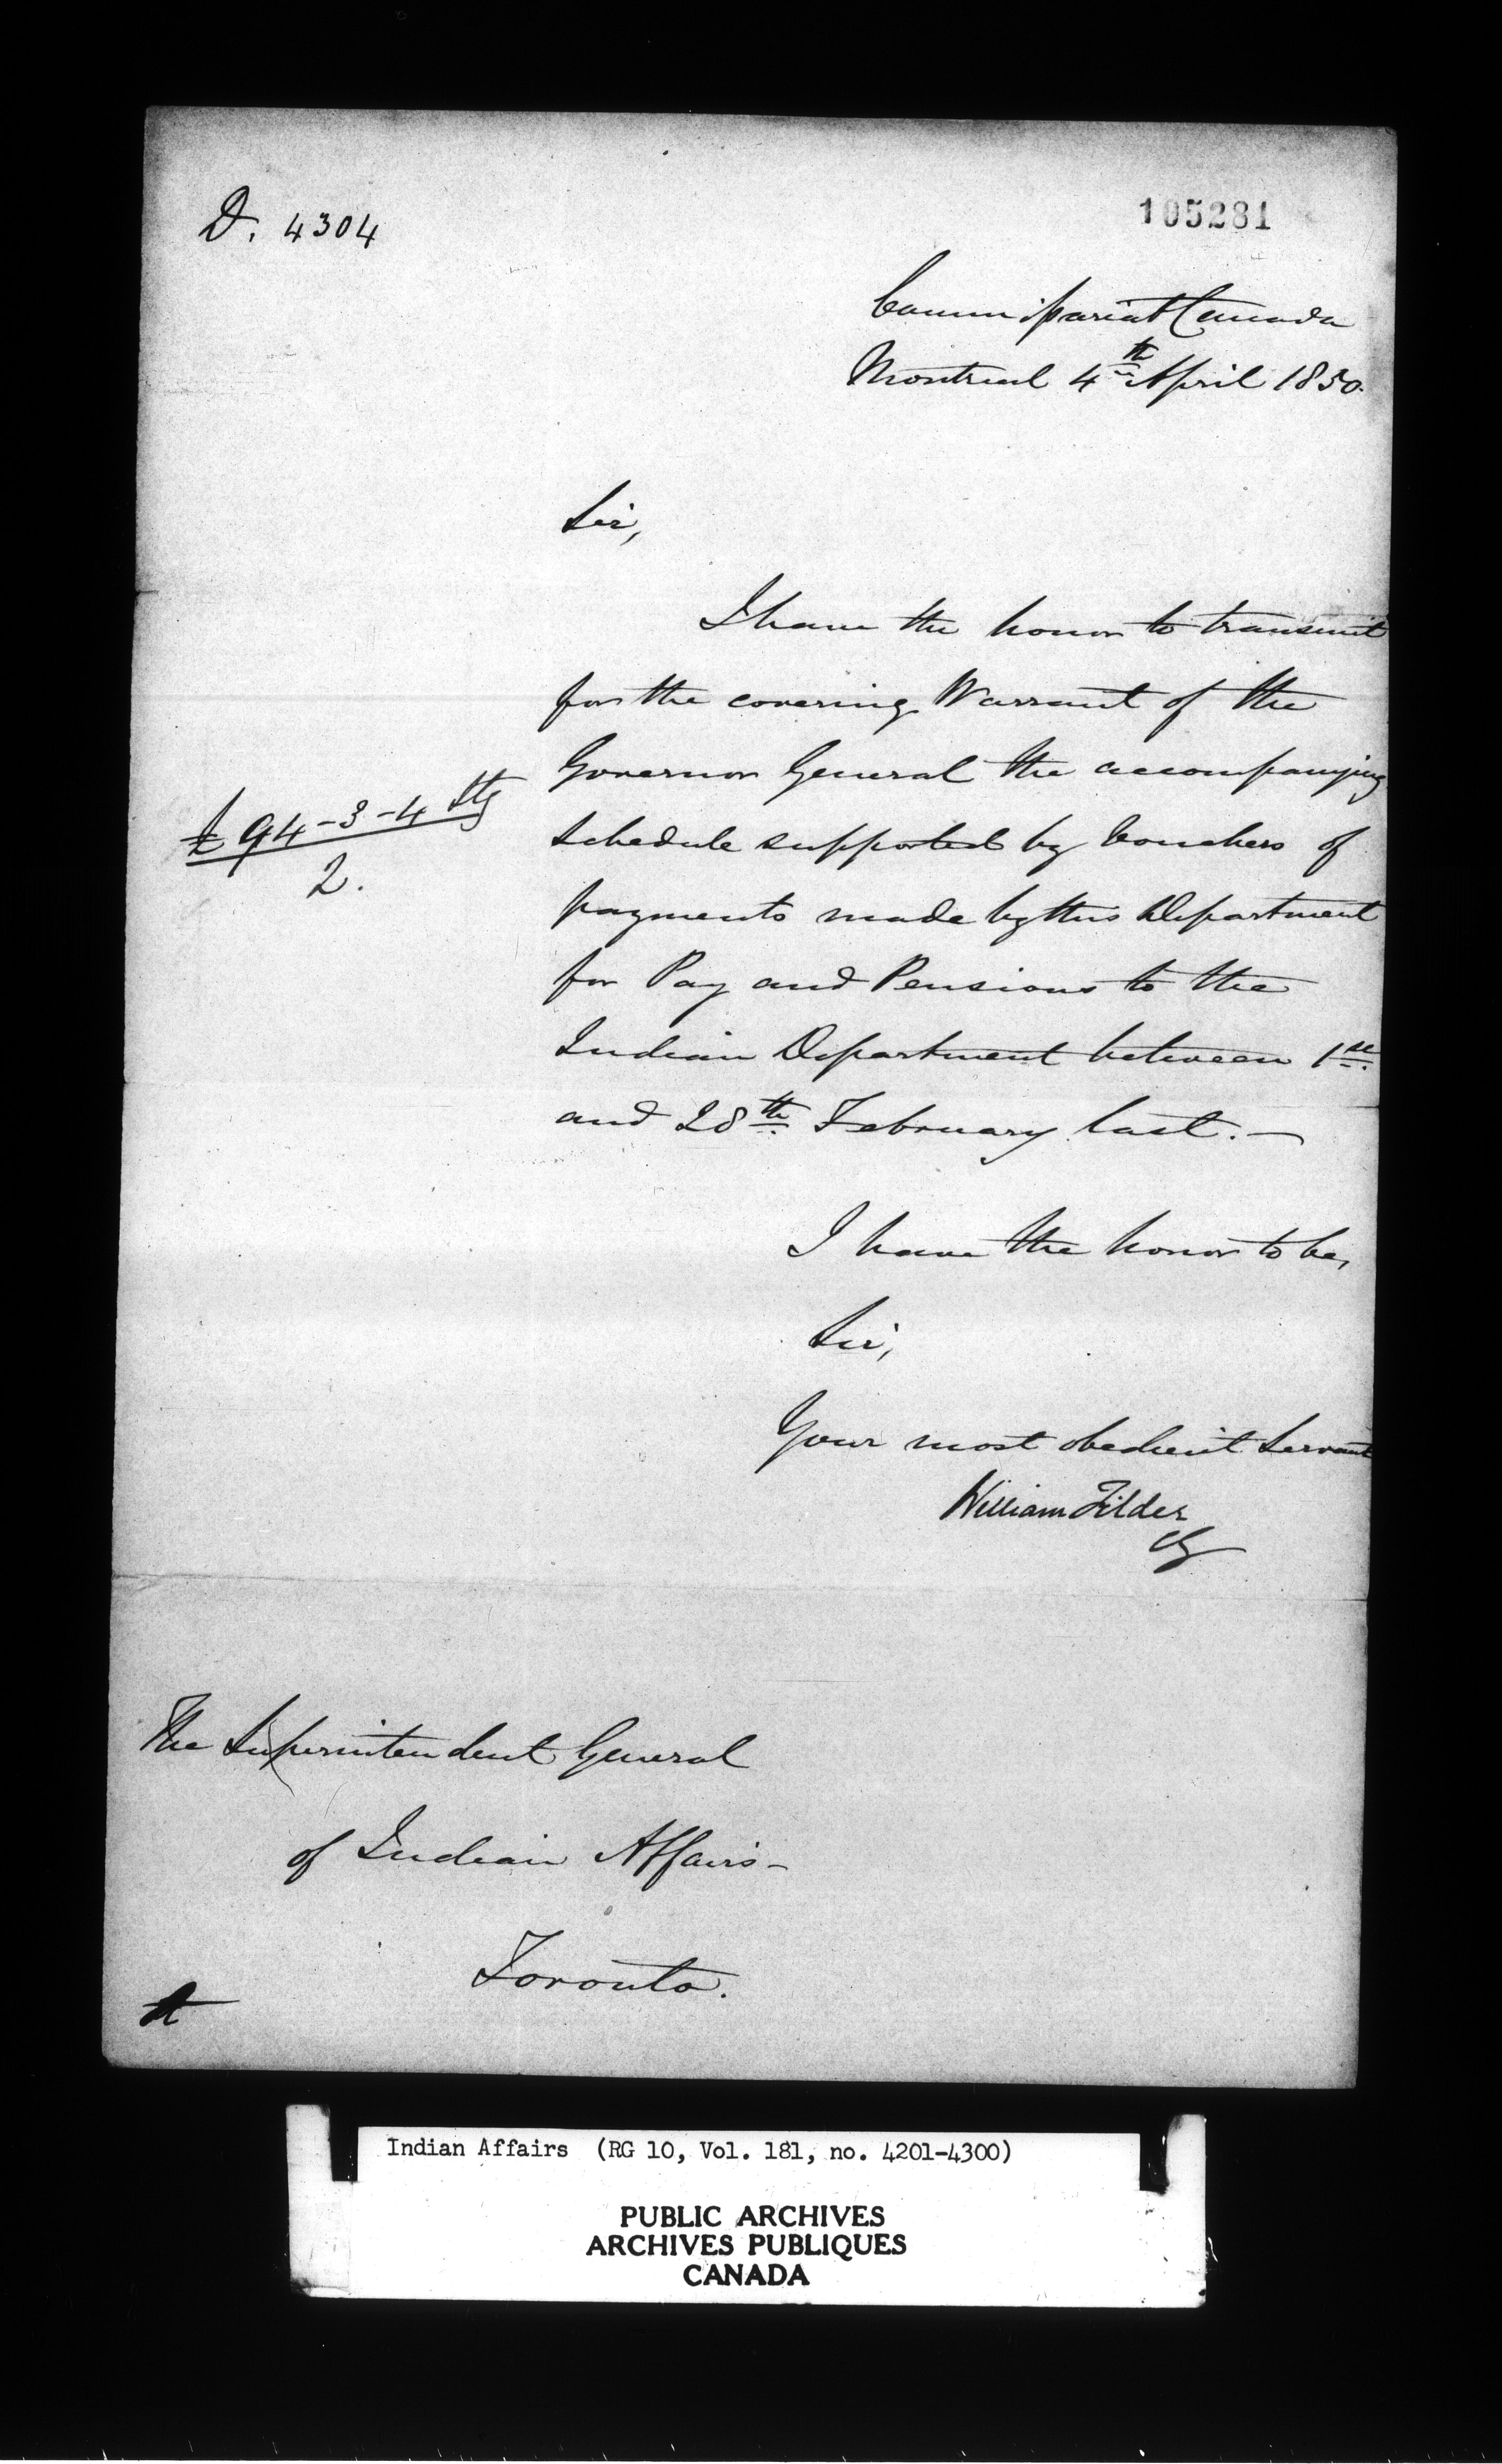 D. 4304
105281
Commissariat Canada
Montreal 4th April 1850.
Sir,
I have the honor to transmit
for the covering Warrant of the
Governor General the accompanying
£94-3-4 Stg
2.
Schedule supported by Vouchers of
payments made by this Department
for Pay and Pensions to the
Indian Department between 1st
and 28th February last. —
I have the honor to be,
Sir,
Your most obedient Servant
William Filder
CG
The Superintendent General
of Indian Affairs-
Toronto.
Indian Affairs (RG 10, Vol. 181, no. 4201-4300)
PUBLIC ARCHIVES
ARCHIVES PUBLIQUES
CANADA